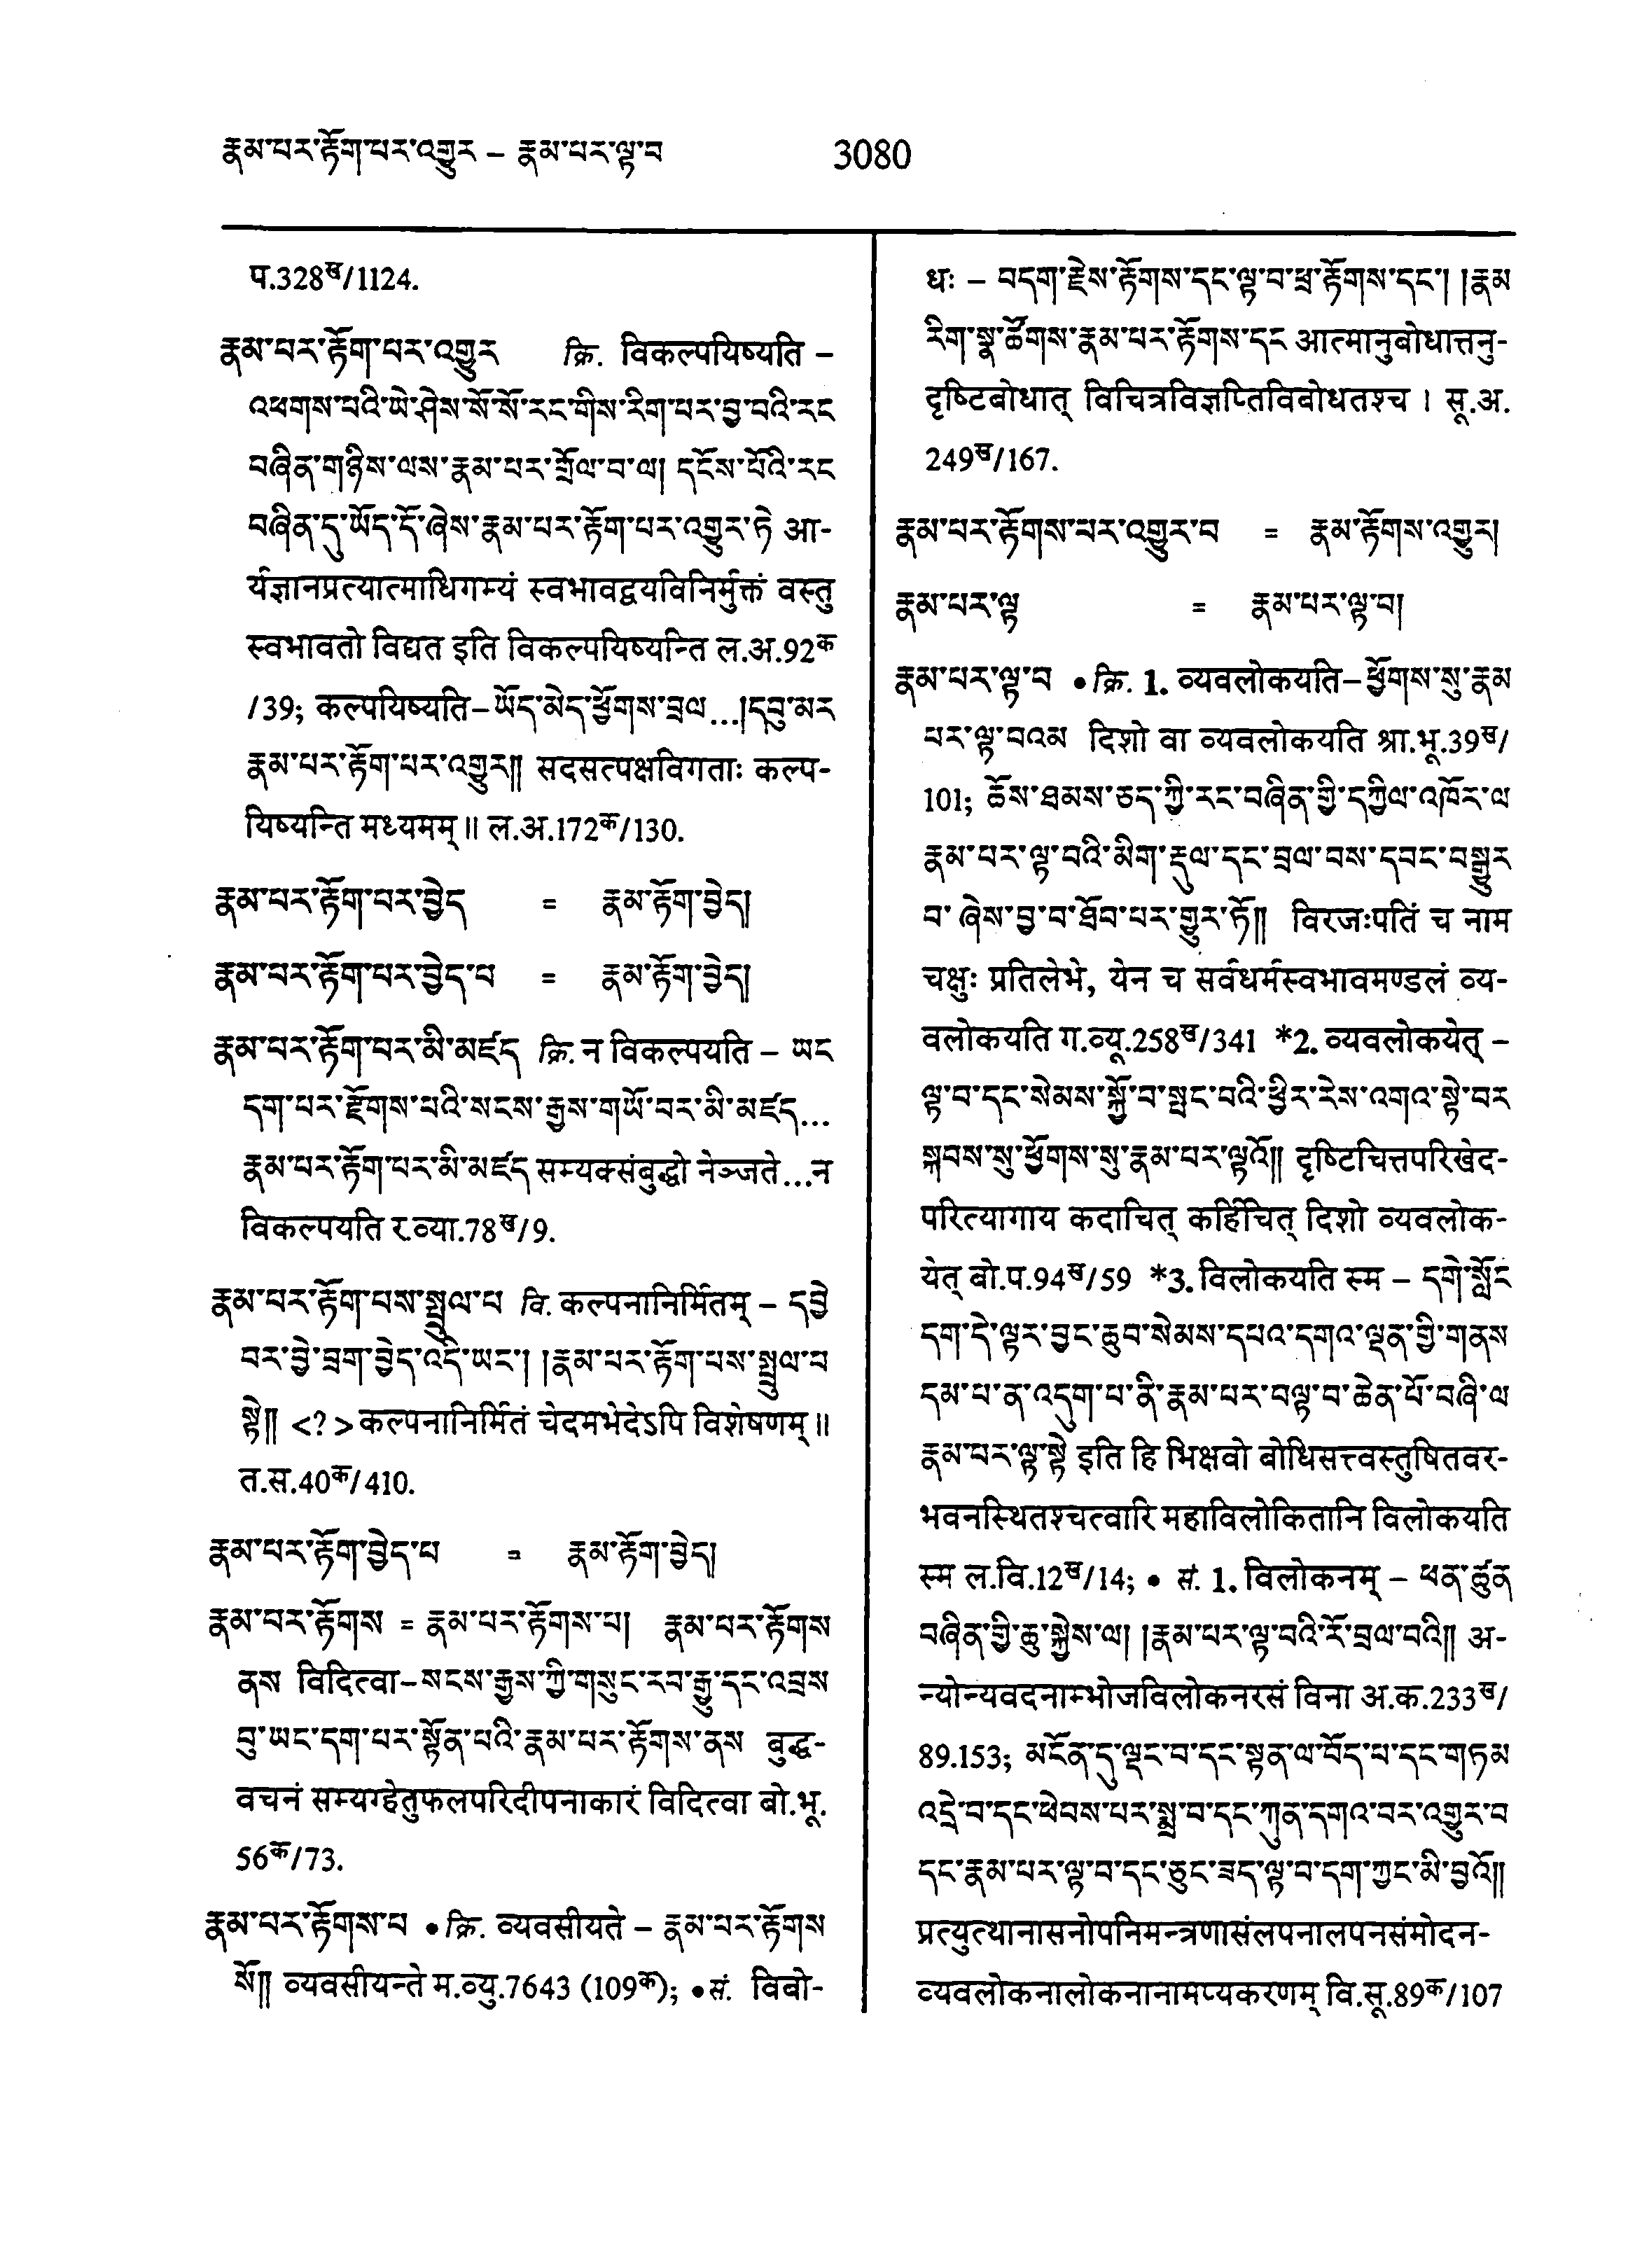 རྣམ་པར་རྟོག་པར་འགྱུར – རྣམ་པར་ལྟ་བ 3080
प.328ख/1124.
རྣམ་པར་རྟོག་པར་འགྱུར क्रि. विकल्पयिष्यति –
འཕགས་པའི་ཡེ་ཤེས་སོ་སོ་རང་གིས་རིག་པར་བྱ་བའི་རང
བཞིན་གཉིས་ལས་རྣམ་པར་གྲོལ་བ་ལ། དངོས་པོའི་རང
བཞིན་དུ་ཡོད་དོ་ཞེས་རྣམ་པར་རྟོག་པར་འགྱུར་ཏེ आ-
र्यज्ञानप्रत्यात्माधिगम्यं स्वभावद्वयविनिर्मुक्तं वस्तु
स्वभावतो विद्यत इति विकल्पयिष्यन्ति ल.अ.92क
/39; कल्पयिष्यति–ཡོད་མེད་ཕྱོགས་བྲལ...།དབུ་མར
རྣམ་པར་རྟོག་པར་འགྱུར།། सदसत्पक्षविगताः कल्प-
यिष्यन्ति मध्यमम् ॥ ल.अ.172क/130.
རྣམ་པར་རྟོག་པར་བྱེད = རྣམ་རྟོག་བྱེད།
རྣམ་པར་རྟོག་པར་བྱེད་པ = རྣམ་རྟོག་བྱེད།
རྣམ་པར་རྟོག་པར་མི་མཛད क्रि. न विकल्पयति – ཡང
དག་པར་རྫོགས་པའི་སངས་རྒྱས་གཡོ་བར་མི་མཛད...
རྣམ་པར་རྟོག་པར་མི་མཛད सम्यक्संबुद्धो नेञ्जते...न
विकल्पयति र.व्या.78ख/9.
རྣམ་པར་རྟོག་པས་སྤྲུལ་པ वि. कल्पनानिर्मितम् – དབྱེ
བར་བྱེ་བྲག་བྱེད་འདི་ཡང་། །རྣམ་པར་རྟོག་པས་སྤྲུལ་པ
སྟེ།། <?> कल्पनानिर्मितं चेदमभेदेऽपि विशेषणम् ॥
त.स.40क/410.
རྣམ་པར་རྟོག་བྱེད་པ = རྣམ་རྟོག་བྱེད།
རྣམ་པར་རྟོགས = རྣམ་པར་རྟོགས་པ། རྣམ་པར་རྟོགས
ནས विदित्वा–སངས་རྒྱས་ཀྱི་གསུང་རབ་རྒྱུ་དང་འབྲས
བུ་ཡང་དག་པར་སྟོན་པའི་རྣམ་པར་རྟོགས་ནས बुद्ध-
वचनं सम्यग्हेतुफलपरिदीपनाकारं विदित्वा बो.भू.
56क/73.
རྣམ་པར་རྟོགས་པ • क्रि. व्यवसीयते – རྣམ་པར་རྟོགས
སོ།། व्यवसीयन्ते म.व्यु.7643 (109क); • सं. विबो-
धः – བདག་རྗེས་རྟོགས་དང་ལྟ་བ་ཕྲ་རྟོགས་དང་། །རྣམ
རིག་སྣ་ཚོགས་རྣམ་པར་རྟོགས་དང आत्मानुबोधात्तनु-
दृष्टिबोधात् विचित्रविज्ञप्तिविबोधतश्च । सू.अ.
249ख/167.
རྣམ་པར་རྟོགས་པར་འགྱུར་བ = རྣམ་རྟོགས་འགྱུར།
རྣམ་པར་ལྟ = རྣམ་པར་ལྟ་བ།
རྣམ་པར་ལྟ་བ • क्रि. 1. व्यवलोकयति–ཕྱོགས་སུ་རྣམ
པར་ལྟ་བའམ दिशो वा व्यवलोकयति श्रा.भू.39ख/
101; ཆོས་ཐམས་ཅད་ཀྱི་རང་བཞིན་གྱི་དཀྱིལ་འཁོར་ལ
རྣམ་པར་ལྟ་བའི་མིག་རྡུལ་དང་བྲལ་བས་དབང་བསྒྱུར
བ་ ཞེས་བྱ་བ་ཐོབ་པར་གྱུར་ཏོ།། विरजःपतिं च नाम
चक्षुः प्रतिलेभे, येन च सर्वधर्मस्वभावमण्डलं व्य-
वलोकयति ग.व्यू.258ख/341 *2. व्यवलोकयेत् –
ལྟ་བ་དང་སེམས་སྐྱོ་བ་སྤང་བའི་ཕྱིར་རེས་འགའ་སྟེ་བར
སྐབས་སུ་ཕྱོགས་སུ་རྣམ་པར་ལྟའོ།། दृष्टिचित्तपरिखेद-
परित्यागाय कदाचित् कर्हिचित् दिशो व्यवलोक-
येत् बो.प.94ख/59 *3. विलोकयति स्म – དགེ་སློང
དག་དེ་ལྟར་བྱང་ཆུབ་སེམས་དཔའ་དགའ་ལྡན་གྱི་གནས
དམ་པ་ན་འདུག་པ་ནི་རྣམ་པར་བལྟ་བ་ཆེན་པོ་བཞི་ལ
རྣམ་པར་ལྟ་སྟེ इति हि भिक्षवो बोधिसत्त्वस्तुषितवर-
भवनस्थितश्चत्वारि महाविलोकितानि विलोकयति
स्म ल.वि.12ख/14; • सं. 1. विलोकनम् – ཕན་ཚུན
བཞིན་གྱི་ཆུ་སྐྱེས་ལ། །རྣམ་པར་ལྟ་བའི་རོ་བྲལ་བའི།། अ-
न्योन्यवदनाम्भोजविलोकनरसं विना अ.क.233ख/
89.153; མངོན་དུ་ལྡང་བ་དང་སྟན་ལ་བོད་པ་དང་གཏམ
འདྲེ་བ་དང་ཕེབས་པར་སྨྲ་བ་དང་ཀུན་དགའ་བར་འགྱུར་བ
དང་རྣམ་པར་ལྟ་བ་དང་ཅུང་ཟད་ལྟ་བ་དག་ཀྱང་མི་བྱའོ།།
प्रत्युत्थानासनोपनिमन्त्रणासंलपनालपनसंमोदन-
व्यवलोकनालोकनानामप्यकरणम् वि.सू.89क/107